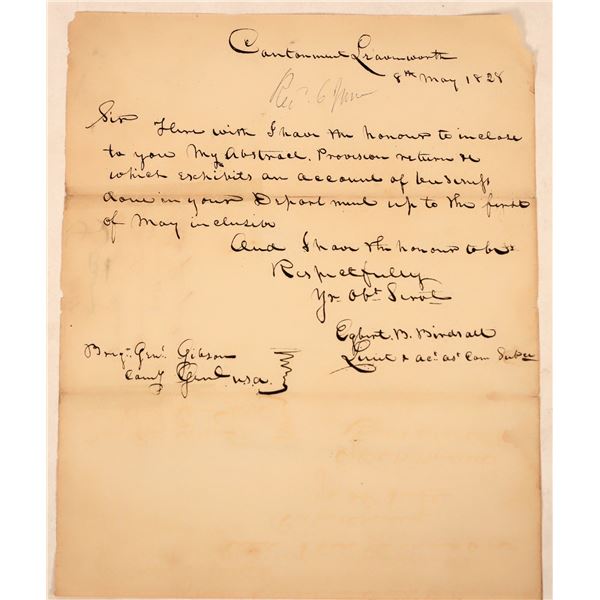 Cantonment Leavenworth
8th May 1828
Recd. 6 June
Sir Here with I have the honour to inclose
to you My Abstract. Provision return &
which exhibits an account of business
done in your Department up to the first
of May inclusive
And I have the honour to be
Respectfully
Yr Obt Servt
Egbert. B. Birdsall
Lieut & ac. as. Com Sub
Brigr. Genl. Gibson
Comy Genl. U.S.A.